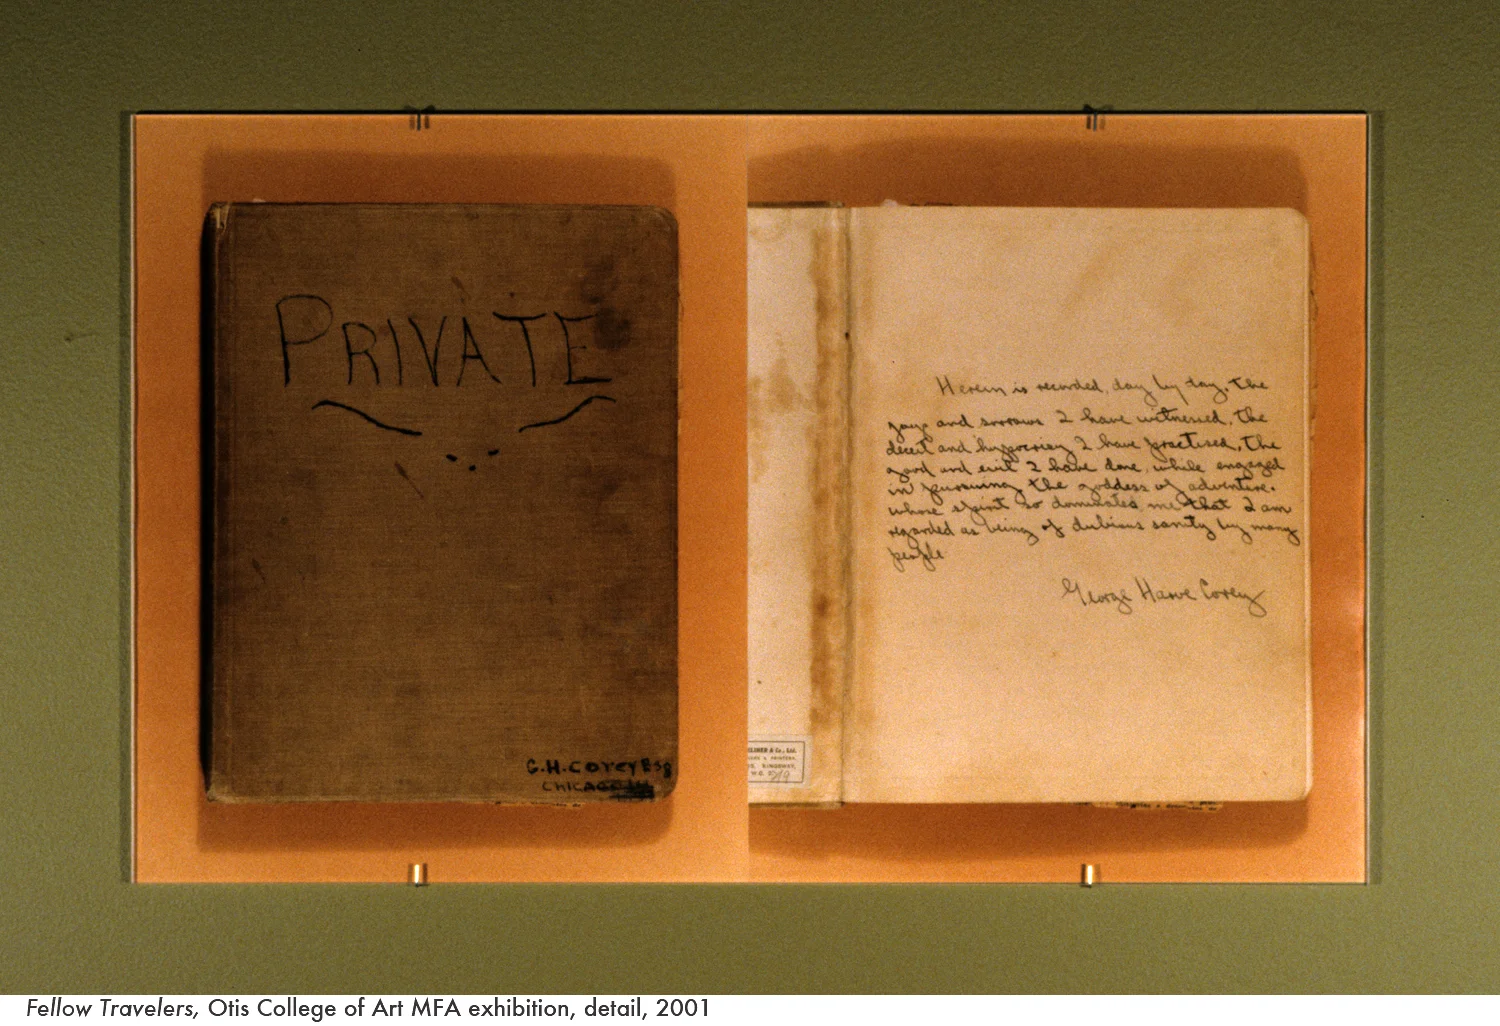 PRIVATE
G.H. COREY ESQ
CHICAGO ILL
Herein is recorded, day by day, the
joys and sorrows I have witnessed, the
deceit and hypocrisy I have practised, the
good and evil I have done, while engaged
in pursuing the goddess of adventure.
whose spirit so dominates me that I am
regarded as being of dubious sanity by many
people
George Harve Corey
& Co., Ltd.
KINGSWAY,
W.C.
Fellow Travelers, Otis College of Art MFA exhibition, detail, 2001